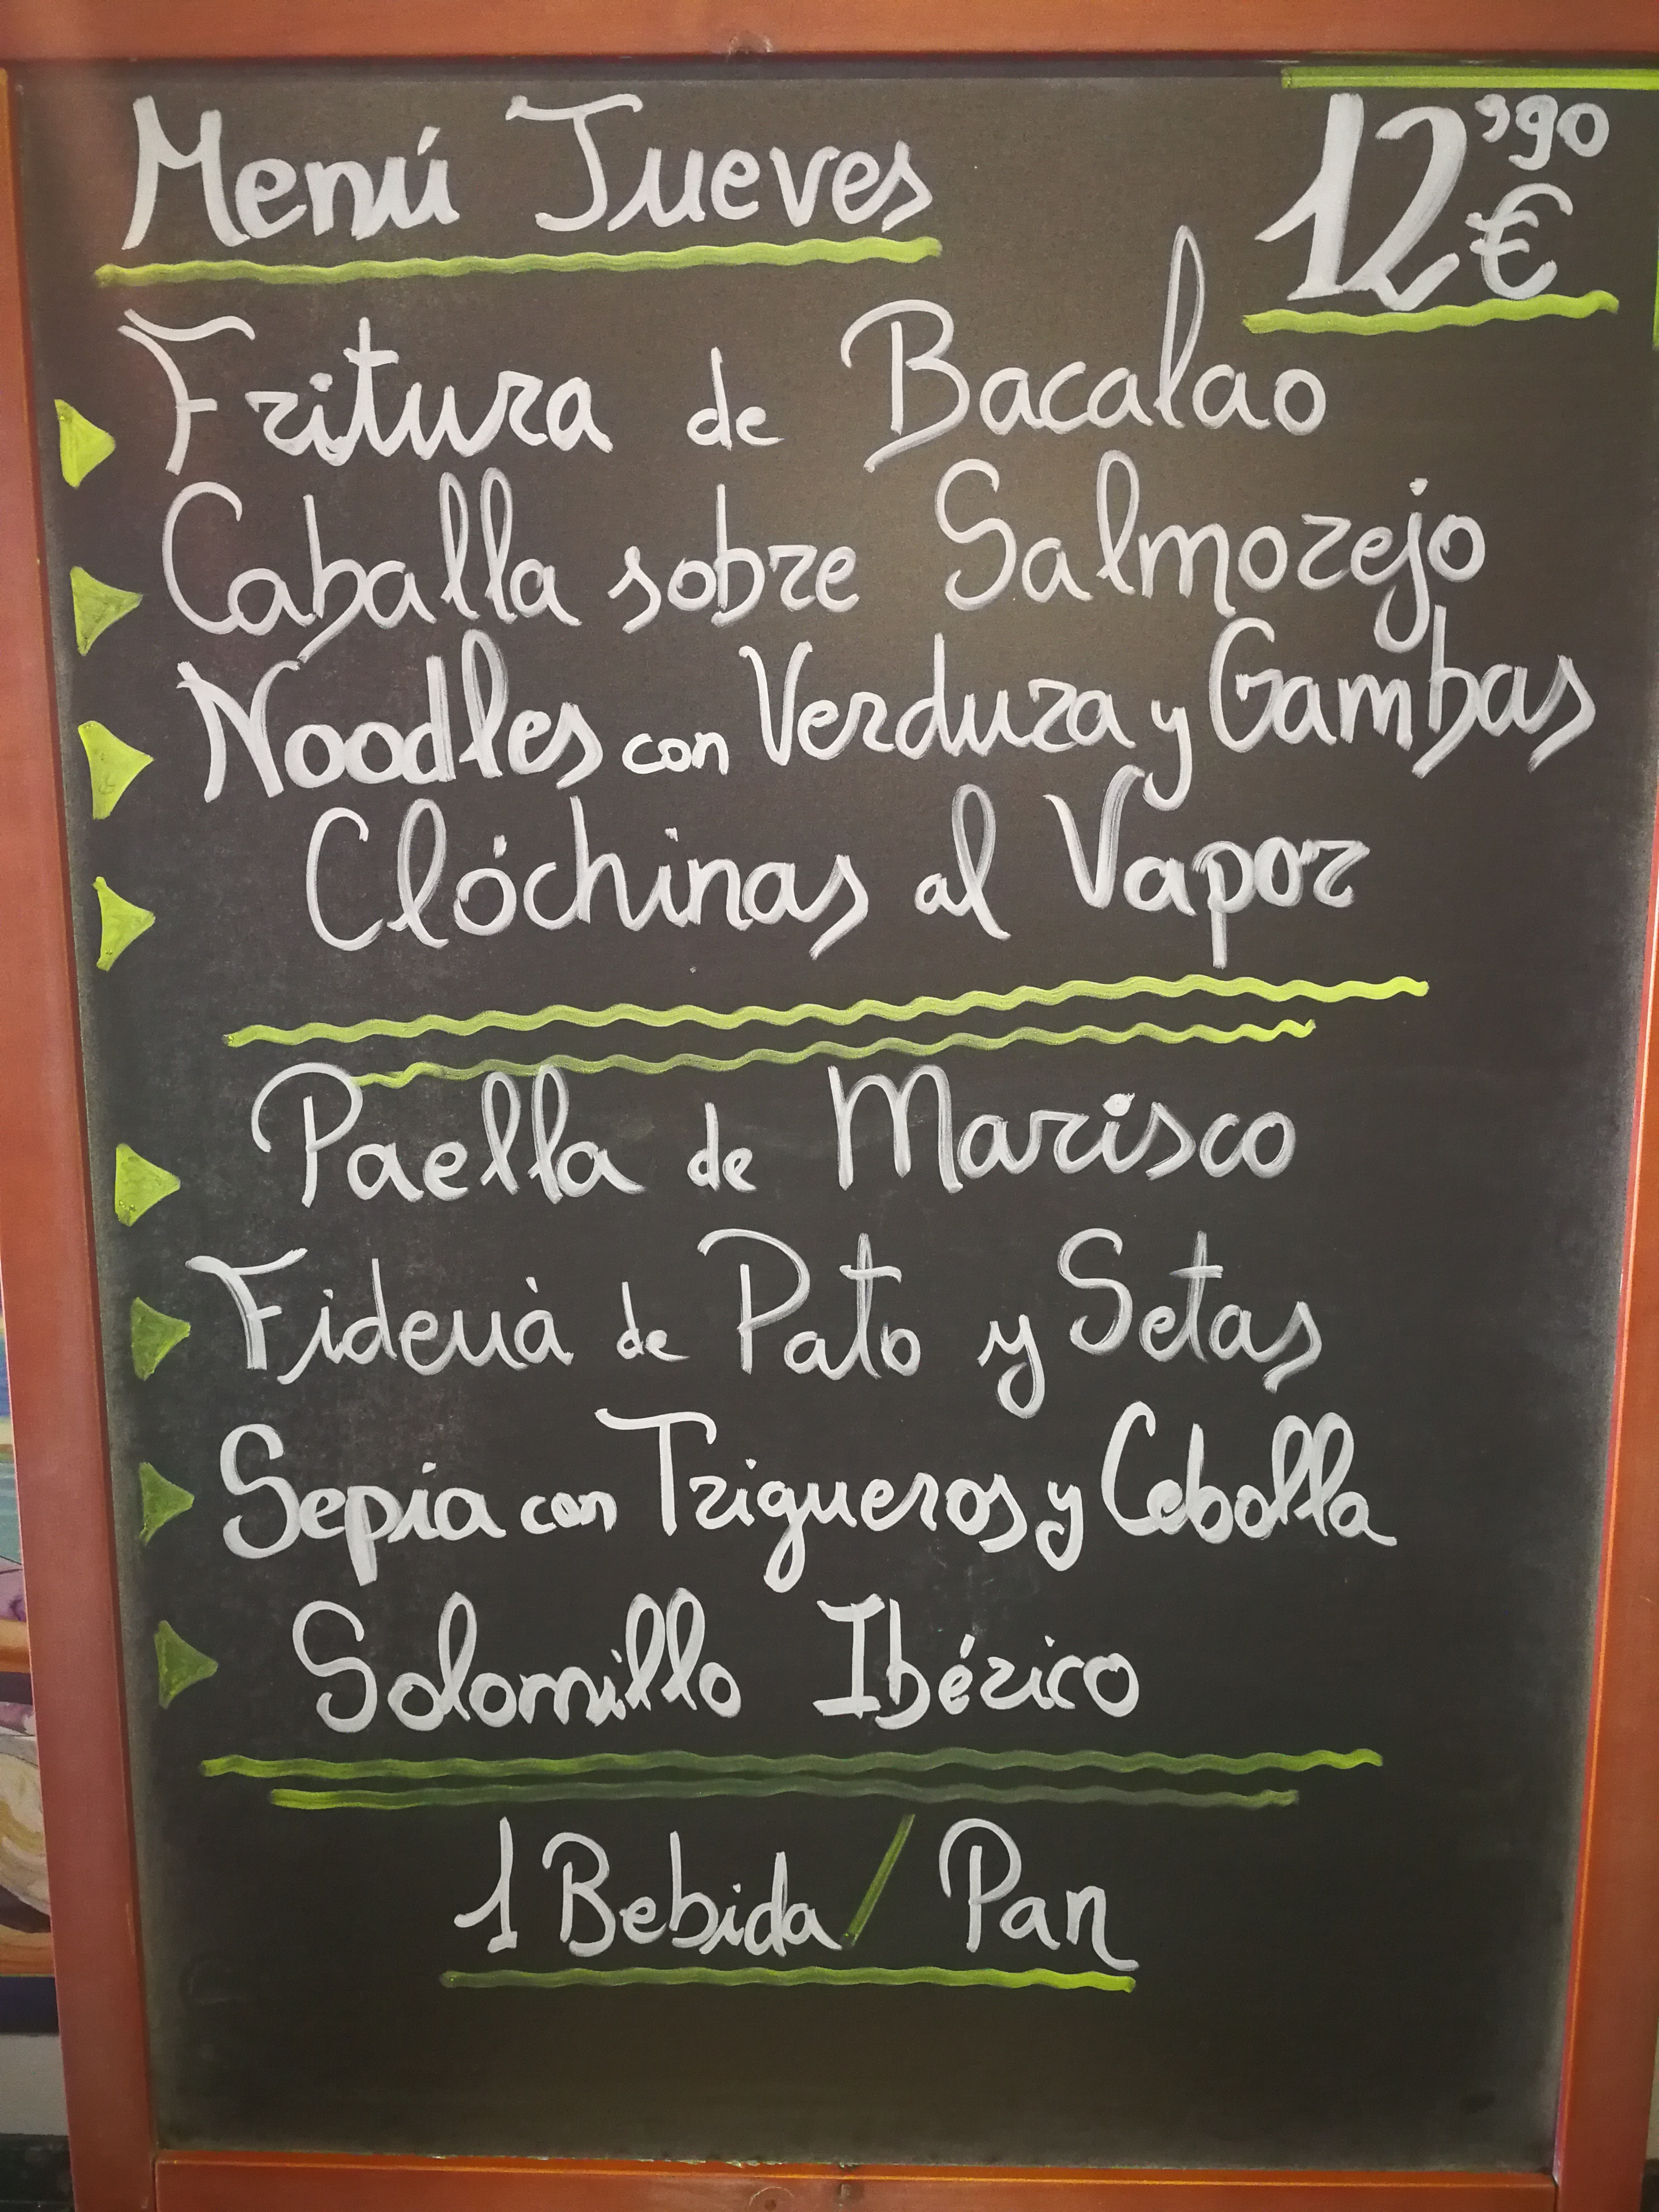 Menú Jueves 12'90 €
Fritura de Bacalao
Caballa sobre Salmorejo
Noodles con Verdura y Gambas
Clóchinas al Vapor
Paella de Marisco
Fideuà de Pato y Setas
Sepia con Trigueros y Cebolla
Solomillo Ibérico
1 Bebida / Pan